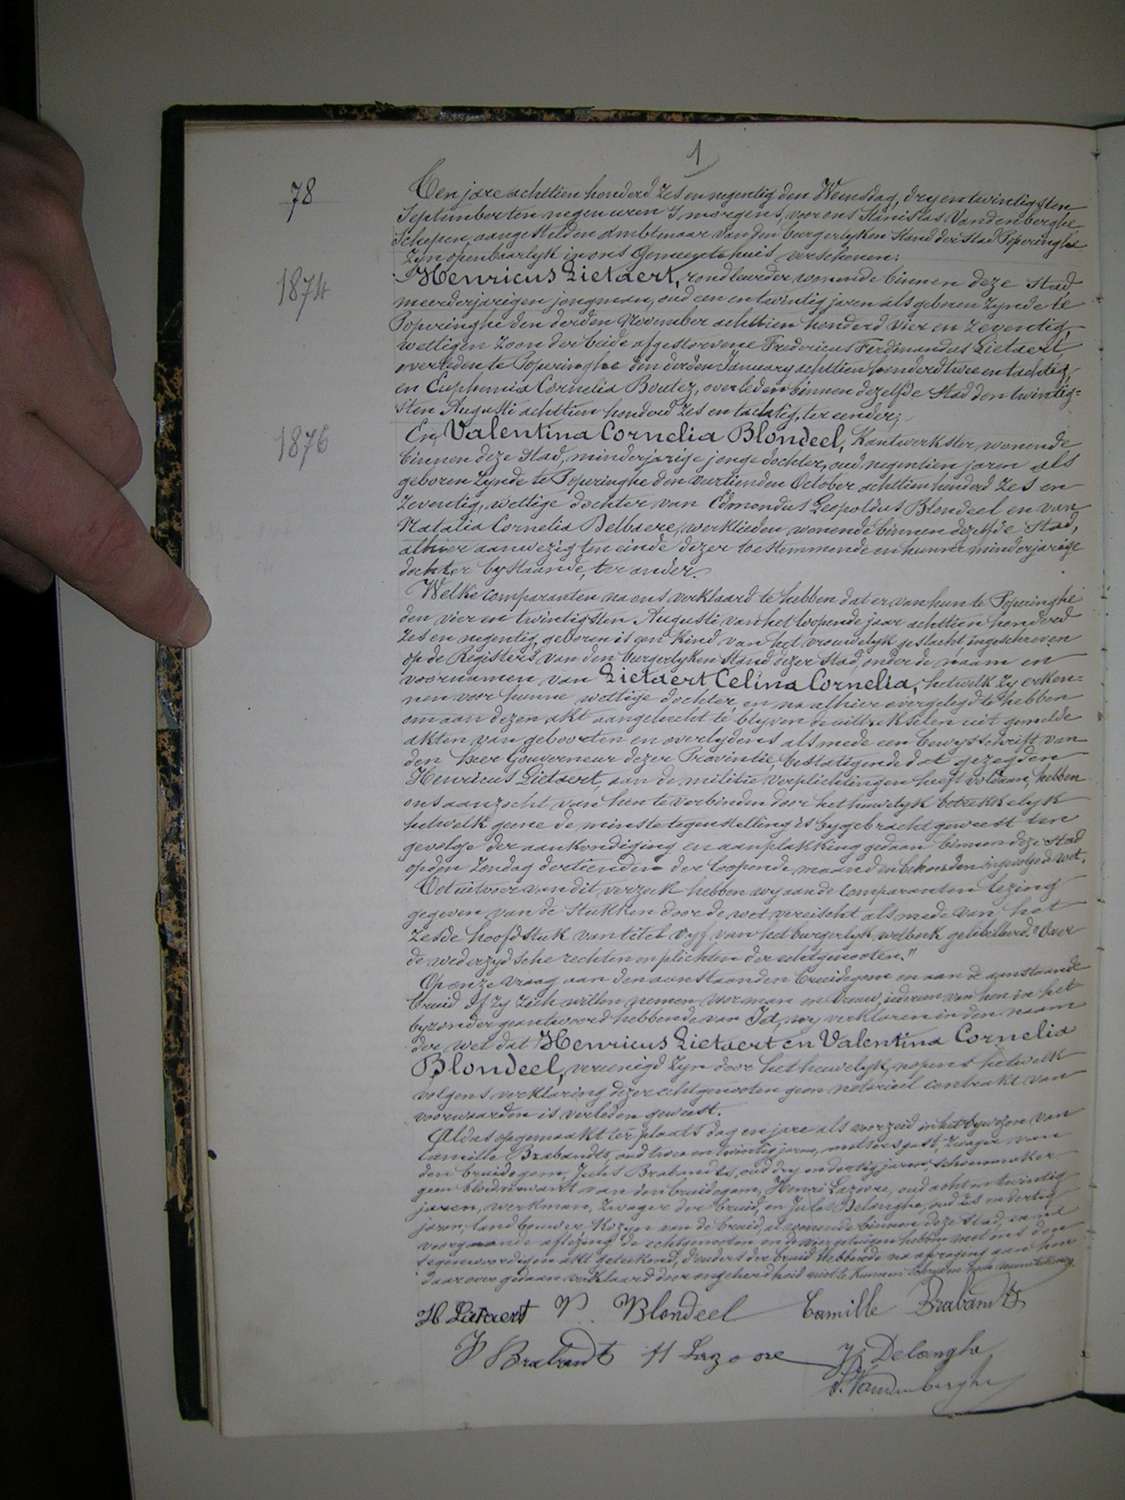 1
78
Ten jare achttien honderd zes en negentig den Woensdag, dry en twintigsten
September ten negen uren 's morgens, voor ons Stanislas Vandenberghe
Schepen, aangestelden Ambtenaar van den burgerlyken Stand der Stad Poperinghe
zyn openbaarlyk in ons Gemeentehuis verschenen:
1874
Henricus Lietaert, wonende binnen deze Stad,
meerderjarigen jongman, oud een en twintig jaren als geboren zynde te
Poperinghe den derden November achttien honderd vier en zeventig,
wettigen zoon der beide afgestorvene Fredericus Ferdinandus Lietaert,
overleden te Poperinghe den derden January achttien honderd twee en tachtig,
en Euphemia Cornelia Boutez, overleden binnen dezelfde Stad den twintig=
sten Augusti achttien honderd zes en tachtig, ter eender;
1876
En Valentina Cornelia Blondeel, Kantwerkster, wonende
binnen deze Stad, minderjarige jonge dochter, oud negentien jaren als
geboren zynde te Poperinghe den veertienden October achttien honderd zes en
zeventig, wettige dochter van Edmondus Leopoldus Blondeel en van
Natalia Cornelia Debbaere, werklieden, wonende binnen dezelfde Stad,
alhier aanwezig ten einde dezer toe stemmende en hunne minderjarige
dochter bystaande, ter ander.
Welke comparanten na ons verklaard te hebben dat er van hun te Poperinghe
den vier en twintigsten Augusti van het loopende jaar achttien honderd
zes en negentig, geboren is een kind van het vrouwelyk geslacht, ingeschreven
op de Registers van den burgerlyken Stand dezer Stad, onder de naam en
voornamen van Lietaert Celina Cornelia, hetwelk zy erken=
nen voor hunne wettige dochter, en na alhier overgelegd te hebben
om aan dezen akt aangehecht te blyven de uittrekselen uit gemelde
akten van geboorten en overlydens alsmede een bewysschrift van
den heer Gouverneur dezer Provintie, bestatigende dat gezegden
Henricus Lietaert, aan de militie verplichtingen heeft voldaan, hebben
ons aanzocht van hun te verbinden door het huwelyk betrekkelyk
hetwelk geene de minste tegenstelling is bygebracht geweest ten
gevolge der aankondiging en aanplakking gedaan binnen deze Stad
op den Zondag dertienden der loopende maand
Tot uitvoer van dit verzoek hebben wy aan de Comparanten lezing
gegeven van de Stukken door de wet vereischt alsmede van het
zesde hoofdstuk van titel vyf van het burgerlyk wetboek gelibelleerd "Over
de wederzydsche rechten en plichten der echtgenooten."
Op onze vraag aan den aanstaanden bruidegom en aan de aanstaande
bruid of zy zich willen nemen voor man en vrouw, iedereen van hen in het
byzonder geantwoord hebbende van Ja, wy verklaren in den naam
der wet dat Henricus Lietaert en Valentina Cornelia
Blondeel, vereenigd zyn door het huwelyk, nopens hetwelk
volgens verklaring dezer echtgenooten geen notarieel contrakt van
voorwaarden is verleden geweest.
Aldus opgemaakt ter plaats dag en jare als voorzeid in het bywezen van
Camille Brabandts, oud twee en twintig jaren, metsersgast, zwager van
den bruidegom, Jules Brabandts, oud dry en dertig jaren schoenmaker
geen bloedverwant van den bruidegom, Henri Lazoore, oud acht en twintig
jaren, werkman, zwager der bruid, en Jules Delanghe, oud zes en dertig
jaren, landbouwer, Kozyn van de bruid, al wonende binnen deze Stad, en na
voorgaande aflezing de echtgenooten en de vier getuigen hebben met ons den
tegenwoordigen akt geteekend, d'ouders der bruid hebbende na afvraging aan hun
daarover gedaan verklaard door ongeleerdheid niet te kunnen
H Lietaert V. Blondeel Camille Brabandts
J Brabandt H Lazoore J. Delanghe
S. Vandenberghe